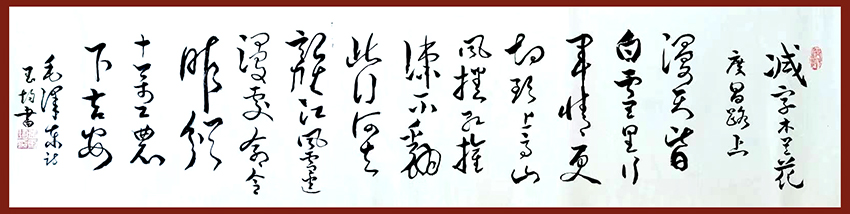 减字木兰花
度昌路上
漫天皆
白雪里行
军情更
切头上高山
风卷红旗
冻不翻
此行何去
赣江风雪迷
漫处命令
昨颁
十万工农
下吉安
毛泽东词
书